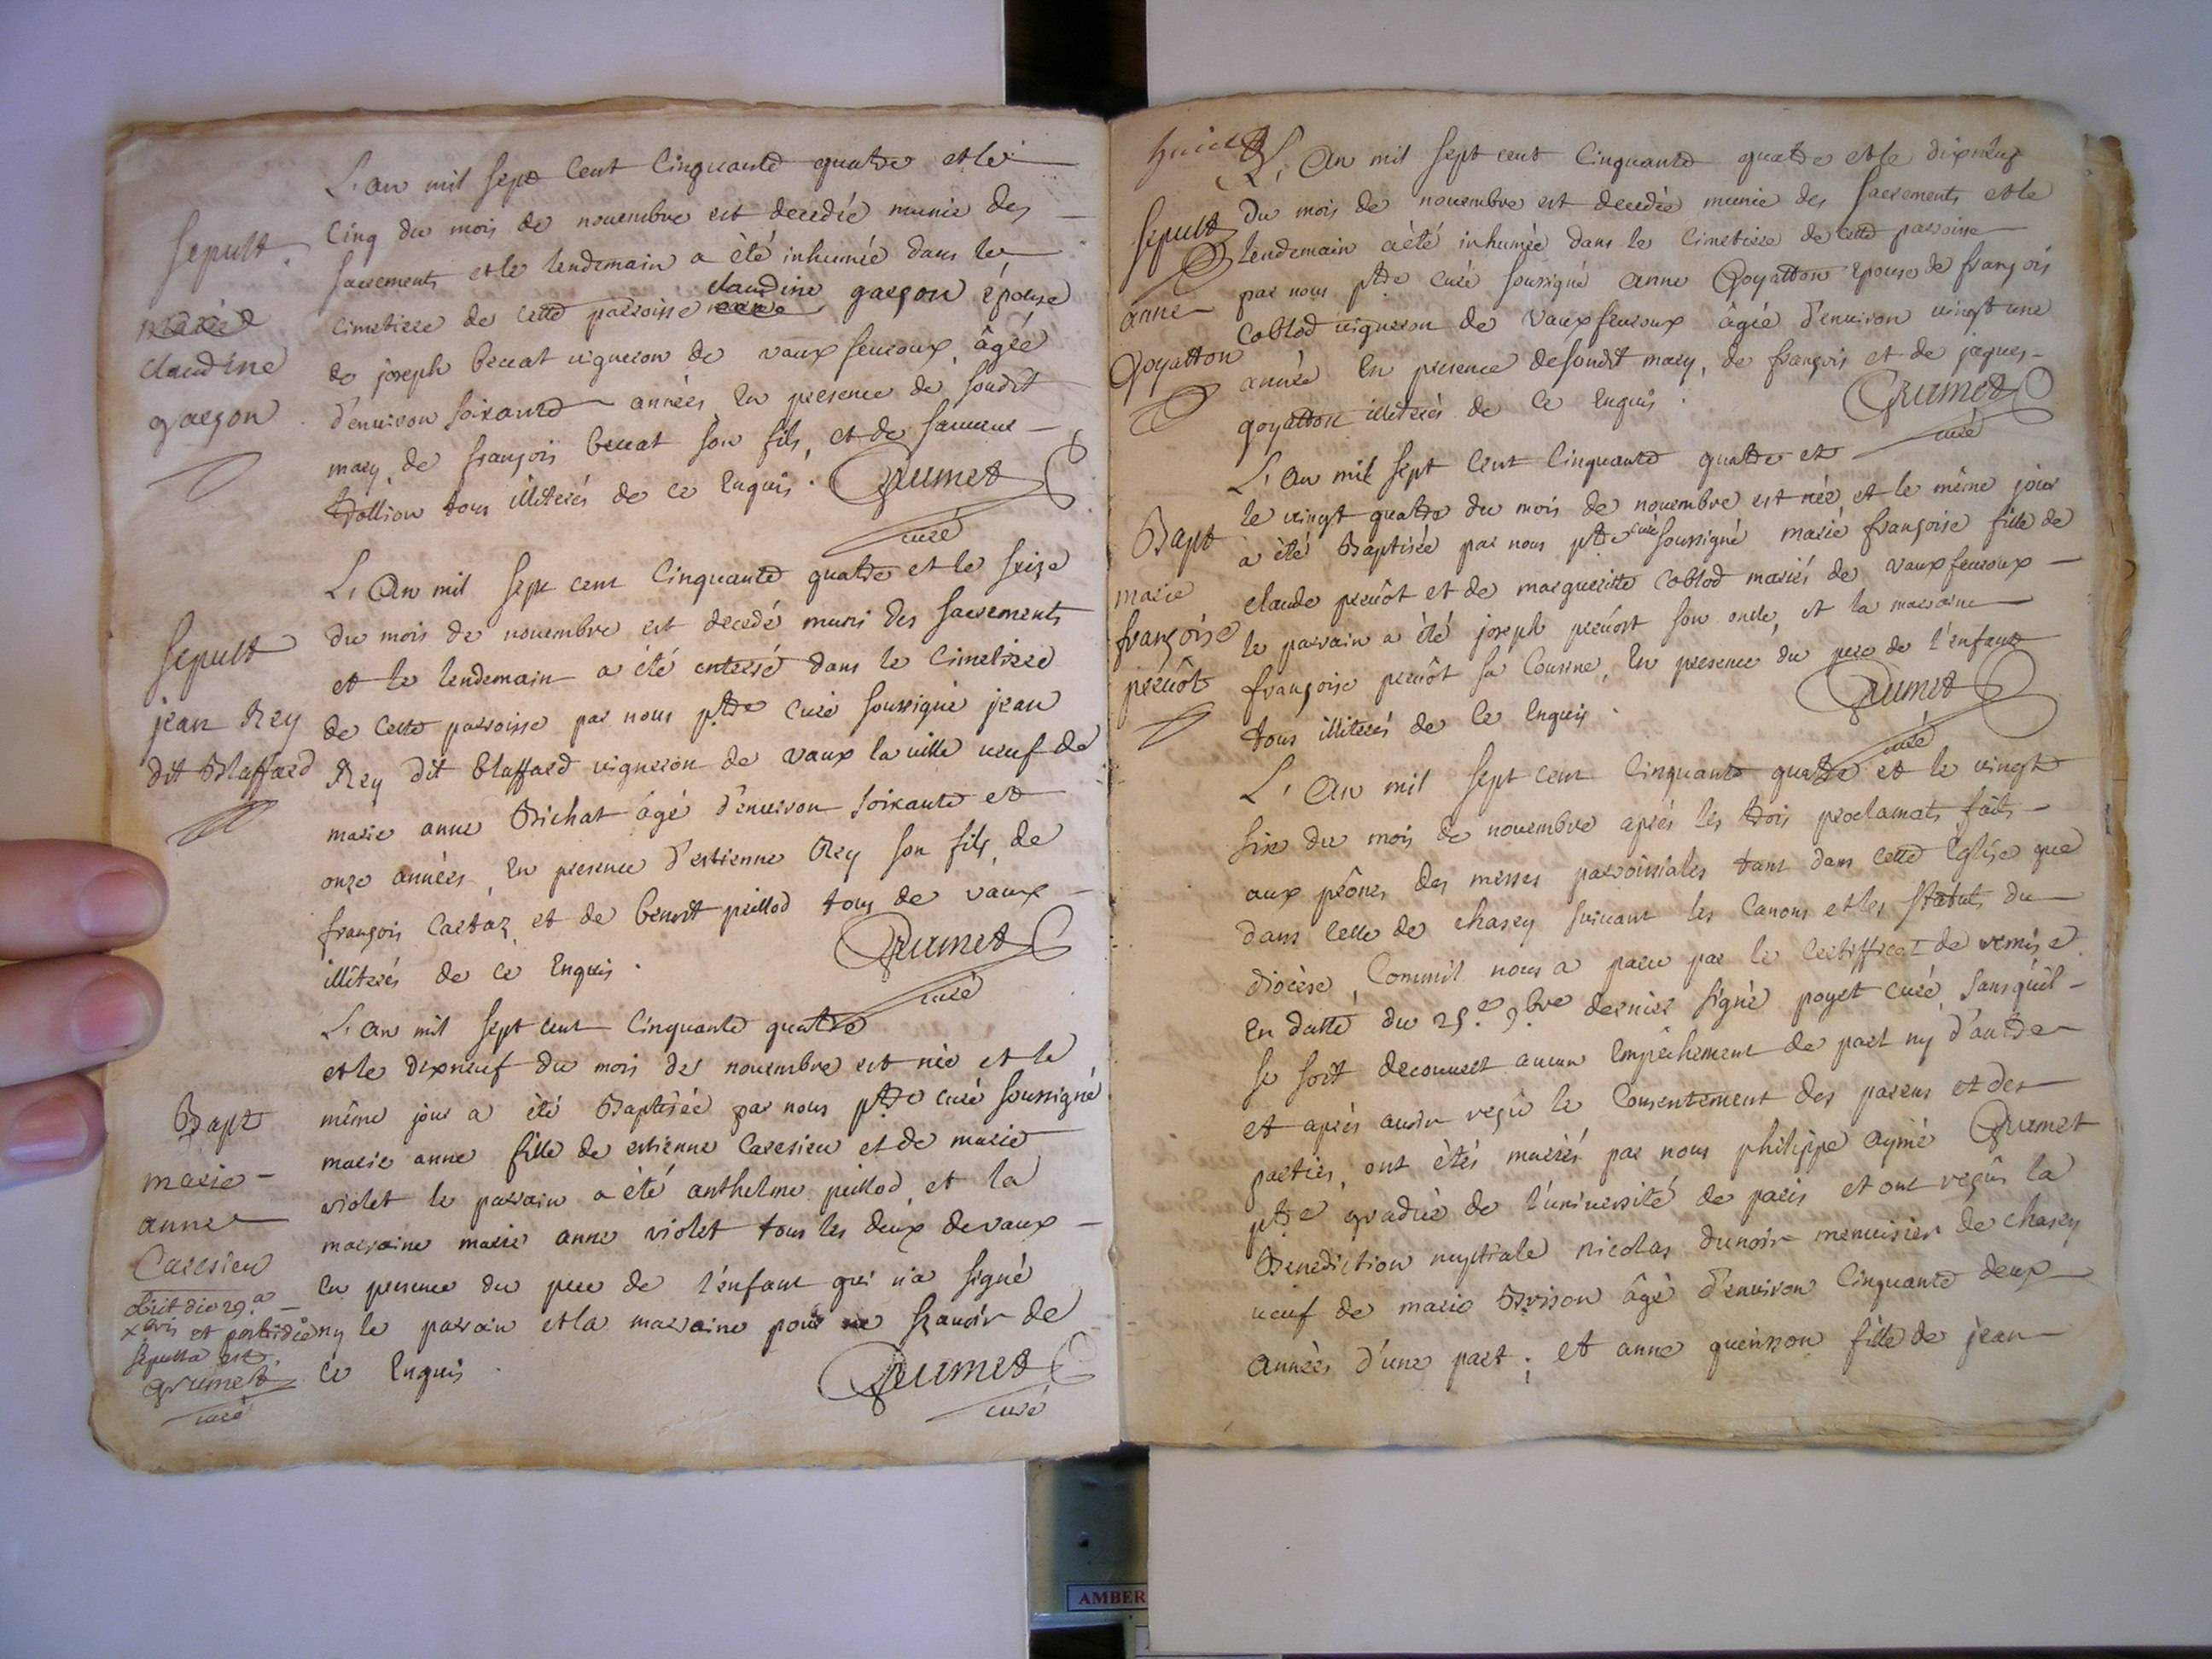 L'an mil sept cent cinquante quatre et le
Sepult. cinq du mois de novembre est decedée munie des
sacrements et le lendemain a été inhumée dans le
claudine
cimetiere de cette parroisse garçon épouse
claudine
de joseph beccat vigneron de vaux fevroux, âgée
garçon
d'environ soixante années en presence de soudit
mary, de françois beccat son fils, et de
tous illiterés de ce enquis. Grumet
curé
L'an mil sept cent cinquante quatre et le seize
Sepult du mois de novembre est decedé muni des sacrements
et le lendemain a été enterré dans le cimetiere
jean Rey de cette parroisse par nous ptre curé soussigné jean
dit Blaffard Rey dit blaffard vigneron de vaux la ville veuf de
marie anne Brichat âgé d'environ soixante et
onze années, en presence d'estienne Rey son fils, de
françois Cartaz, et de benoit peillod tous de vaux
illiterés de ce enquis. Grumet
curé
L'an mil sept cent cinquante quatre
et le dixneuf du mois de novembre est née et le
Bapt même jour a été Baptisée par nous ptre curé soussigné
marie- marie anne fille de estienne Caresieu et de marie
anne violet le parrain a été anthelme peillod, et la
marraine marie anne violet tous les deux de vaux
Caresieu en presence du pere de l'enfant qui n'a signé
obiit die 29.a
xbris et postridie ny le parrain et la marraine pour ne sçavoir de
sepulta est.
grumet ce enquis. Grumet
curé curé
L'An mil sept cent cinquante quatre et le dixneuf
Sepult du mois de novembre est decedée munie des sacrements et le
lendemain a été inhumée dans le cimetiere de cette parroisse
anne par nous ptre curé soussigné anne Goyatton epouse de françois
Goyatton coblod vigneron de vaux fevroux âgée d'environ vingt une
année en presence de soudit mary, de françois et de jaques
goyatton illiterés de ce enquis. Grumet
curé
L'an mil sept cent cinquante quatre et
le vingt quatre du mois de novembre est née et le même jour
Bapt a été Baptisée par nous ptre curé soussigné marie françoise fille de
marie claude prevôt et de marguerite coblod mariés de vaux fevroux
françoise le parrain a été joseph prevôt son oncle, et la marraine
prevôt françoise prevôt sa cousine, en presence du pere de l'enfant
tous illiterés de ce enquis. Grumet
curé
L'An mil sept cent cinquante quatre et le vingt
six du mois de novembre aprés les trois proclamats faits
aux prônes des messes parroissiales tant dans cette Eglise que
dans celle de chasey suivant les canons et les statuts du
diocèse, comm'il nous a paru par le certifficat de remise
en datte du 25.e 9.bre dernier signé poyet curé, sans qu'il
se soit decouvert aucun empêchement de part ny d'autre
et aprés avoir reçu le consentement des parens et des
parties, ont étés mariés par nous philippe aymé Grumet
ptre gradué de l'université de paris et ont reçûs la
Benediction nuptiale nicolas dunoir menuisier de chasey
veuf de marie Brison âgé d'environ cinquante deux
années d'une part; et anne guerisson fille de jean
AMBER